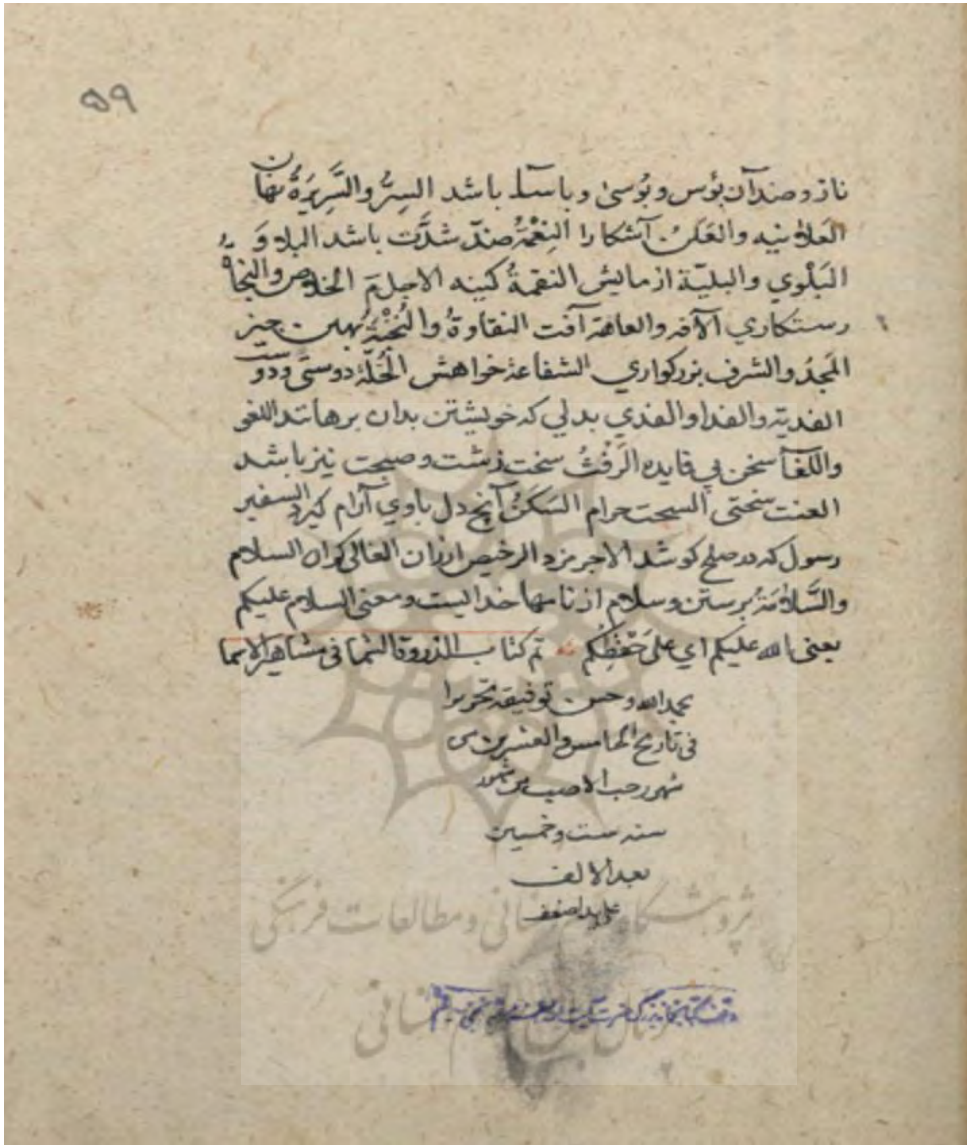 ۵۹
ناز و ضد آن بؤس و بُوسیٰ و باسآ باشد السِرُّ والسَّرِیرَةُ نهان
العلانیه والعَلَنُ آشکارا النِعْمَةُ ضدّ شدَّت باشد البلاء وَ
البَلْوي والبلیّة ازمایش النقمةُ کینه الاجل مَ الخلاص والنجاةُ
رستکاري الآفه والعاهة آفت النقاوةُ والنُخْبَةُ بهین چیز
المَجدُ والشرف بزرکواري الشفاعة خواهش الخُلّة دوستی و دوست
الفدیة والفدا والفدي بدلي که خویشتن بدان برهانند اللغو
واللَّغَا سخن بي فایده الرَفْثُ سخت زشت و صبحت نیز باشد
العنت سختی السحت حرام السَکَنُ آنچ دل باوي آرام کیرد السفیر
رسول که در صلح کوشد الاجر مزد الرخیص ارزان الغالی کران السلام
والسَّلامَةُ برستن و سلام از نامهاء خدایست و معنی السلام علیکم
یعنی الله علیکم اي علیٰ حَفْظِکُم تم کتاب الذروة السما فی مشاهیر الاسما
بحمد الله و حسن توفیقه تحریرا
فی تاریخ الخامس والعشرین من
شهر رجب الاصب من شهور
سنه ست و خمسین
بعد الالف
پژوهشگاه علوم انسانی و مطالعات فرهنگی
پرتال جامع علوم انسانی